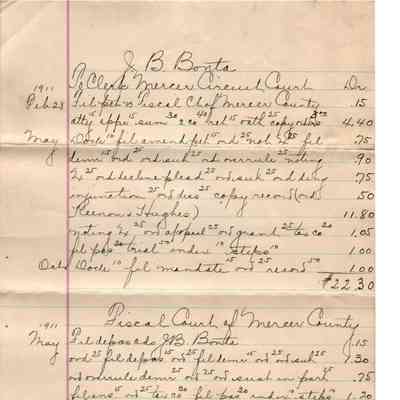 J B Bonta
To Clerk Mercer Circuit Court Dr
1911
Feb 28 Fil peti vs Fiscal Ct of Mercer County .15
atty 15 sum 30 2 co 40 ret 15 oath 25 copy 4.40
May Dock 10 fil amend peti 15 ord 25 not Ex 25 fil .75
demr 15 ord 25 sub 25 ord overrule 25 noting .90
Ex 25 ord decline plead 25 ord sub 25 ord ding .75
injunction 25 ord dis 25 copy record (ords 50
Keenon & Hughes) 11.80
noting Ex 25 ord appeal 25 ord grant 25 tax co 20 1.05
fil pas 20 trial 50 index 10 steps 10 1.00
Octo Dock 10 fil mandate 15 ord 25 record 50 1.00
$22.30
Fiscal Court of Mercer County
1911
May Fil depos ads J.B. Bonta .15
ord 25 fil depos 15 ord 25 fil demr 15 ord 25 ord sub 25 1.30
ord overrule demr 25 ord 25 ord sust in part 25 .75
fil ans 15 ord 25 tax co 20 fil pas 20 index 10 steps 10 1.20